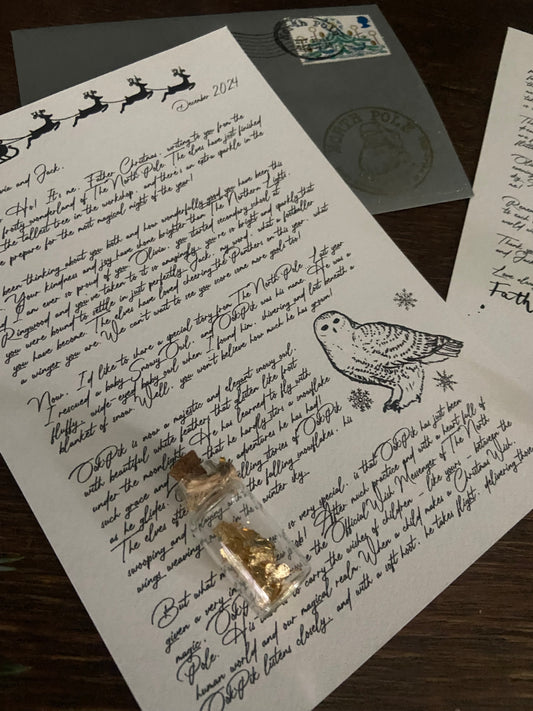 NORTH POLE
NORTH POLE
December 2024
Olivia and Jack,
Ho! It's me, Father Christmas, writing to you from the
frosty wonderland of The North Pole. The elves have just finished
the tallest tree in the workshop, and there's an extra sparkle in the
we prepare for the most magical night of the year!
been thinking about you both and how wonderfully good you have been this
Your kindness and joy have shone brighter than The Northern Lights.
I am ever so proud of you. Olivia, you started secondary school at
Ringwood and you've taken to it so amazingly, you are so bright and sparkly that
you were bound to settle in just perfectly. Jack, my word, what a footballer
you have become. The elves have loved cheering the Panthers on this year - what
a winger you are. We can't wait to see you score some more goals too!
Now, I'd like to share a special story from The North Pole. Last year
I rescued a baby Snowy Owl, and OokPik was his name. He was a
fluffy, wide-eyed baby owl when I found him, shivering and lost beneath a
blanket of snow. Well, you won't believe how much he has grown!
OokPik is now a majestic and elegant snowy owl,
with beautiful white feathers that glitter like frost
under the moonlight. He has learned to fly with
such grace and that he handly stirs a snowflake
as he glides. adventures he has had!
The elves telling stories of OokPik
swooping and playing the falling snowflakes, his
wings weaving the winter sky.
But what so very special, is that OokPik has just been
given a very im job! After much practice and with a heart full of
magic, OokPik the Official Wish Messenger of The North
Pole. His is to carry the wishes of children - like yours - between the
human world and our magical realm. When a child makes a Christmas Wish,
OokPik listens closely, and with a soft hoot, he takes flight, delivering those
Love
Fath